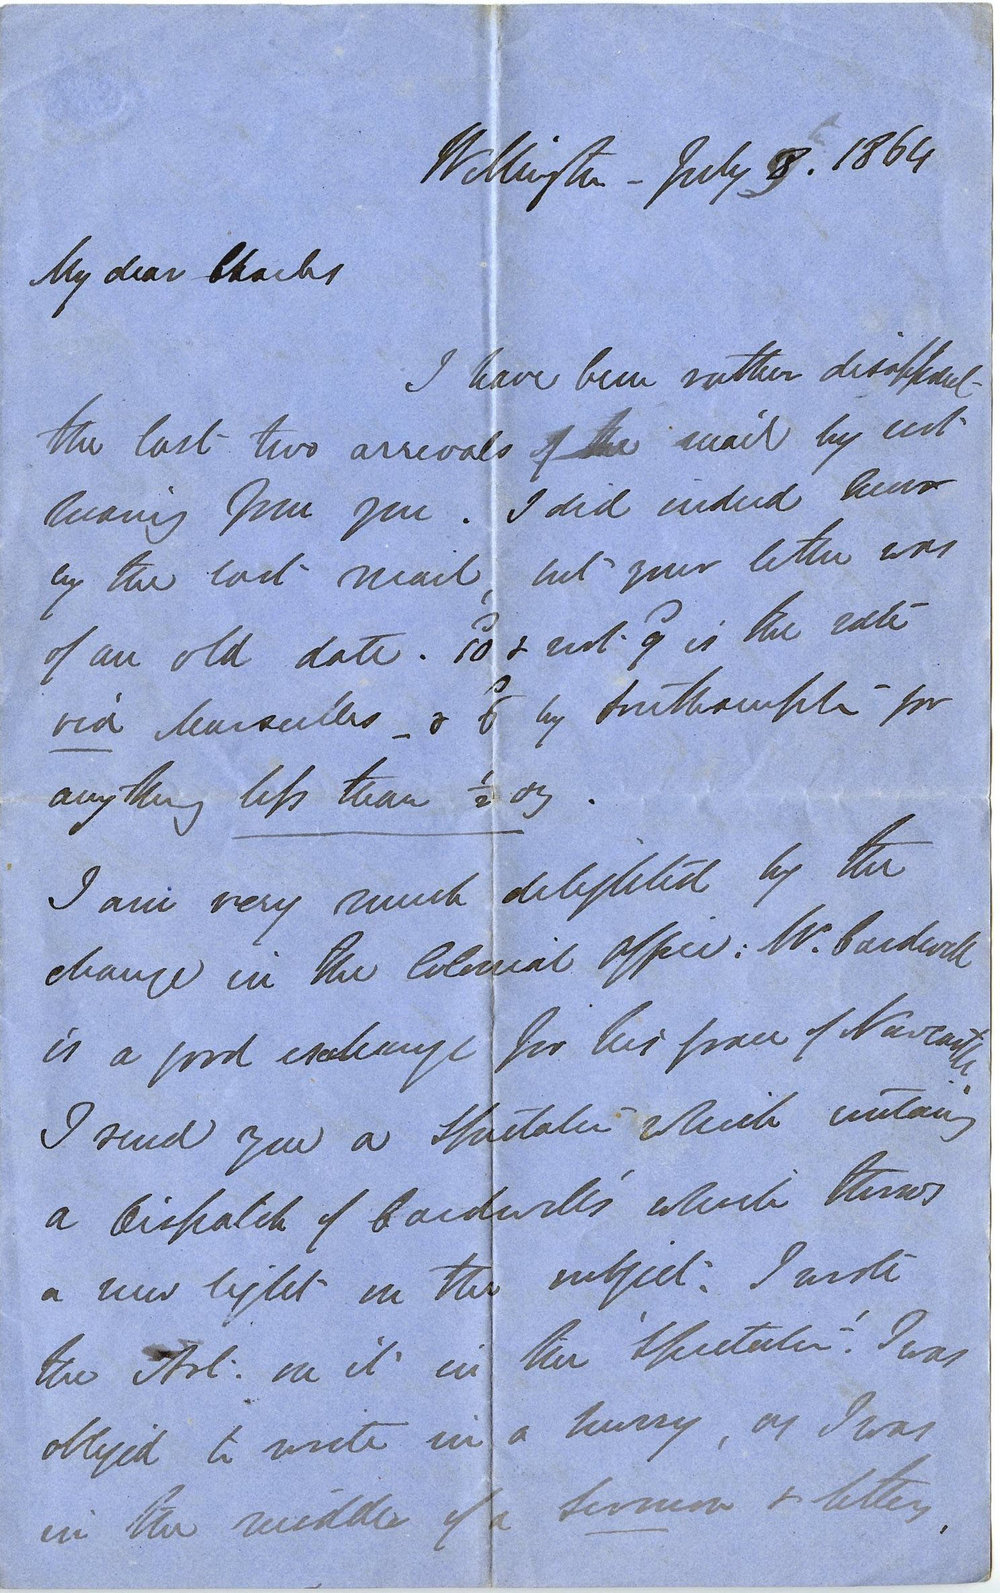 Wellington - July 8th. 1864
My dear Charles
I have been rather disappointed
the last two arrivals of the mail by not
hearing from you. I did indeed hear
by the last mail, but your letter was
of an old date. 10d & not 9d is the rate
via Marseilles - & 6d by Southampton for
anything less than ½ oz.
I am very much delighted by the
change in the Colonial Office: Mr. Cardwell
is a good exchange for his grace of Newcastle.
I send you a Spectator which contains
a Dispatch of Cardwell's which throws
a new light on the subject. I wrote
the Art. on it in the 'Spectator'. I was
obliged to write in a hurry, as I was
in the middle of a sermon & letters,